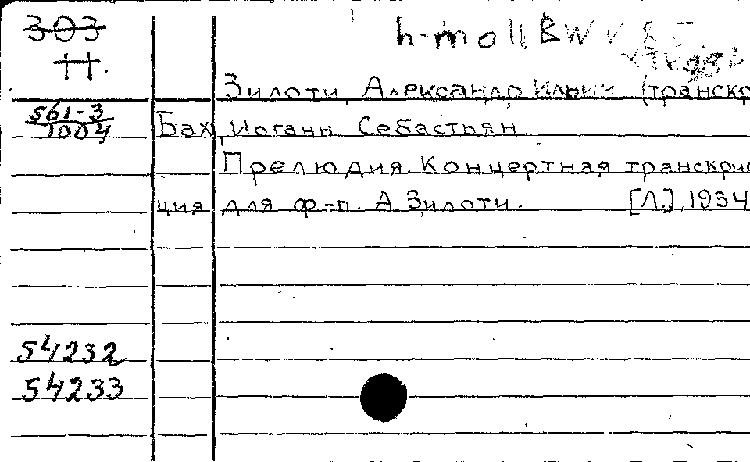 303
h-moll BWV
H.
Зилоти, Александр Ильич (транскр
561-3
1004
Бах, Иоганн Себастьян
Прелюдия. Концертная транскрип
ция для ф-п. А. Зилоти. [Л.], 1934
54232
54233